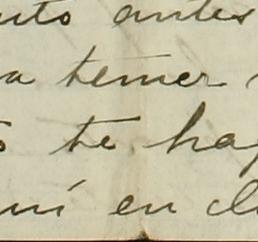 uto antes
a temer
s te hag
uí en cl